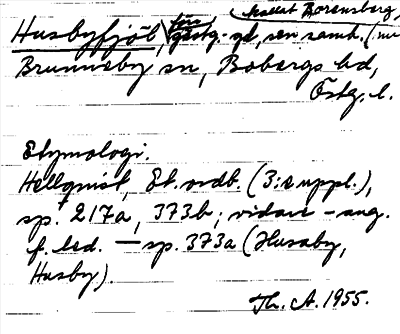 kallat Borensberg,
Husbyfjöl, förr gästg.-gd, sen samh. (nu
Brunneby sn, Bobergs hd,
Östg. l.
Etymologi.
Hellquist, Et. ordb. (3:e uppl.),
sp. 217a, 373b; vidare – ang.
f. led. — sp. 373a (Husaby,
Husby).
Th. A. 1955.